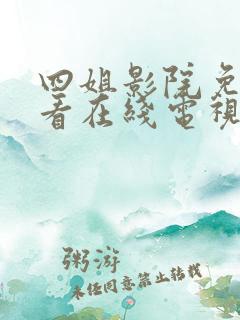 四姐影院免
看在线電視
粥游
未任同意禁止转载